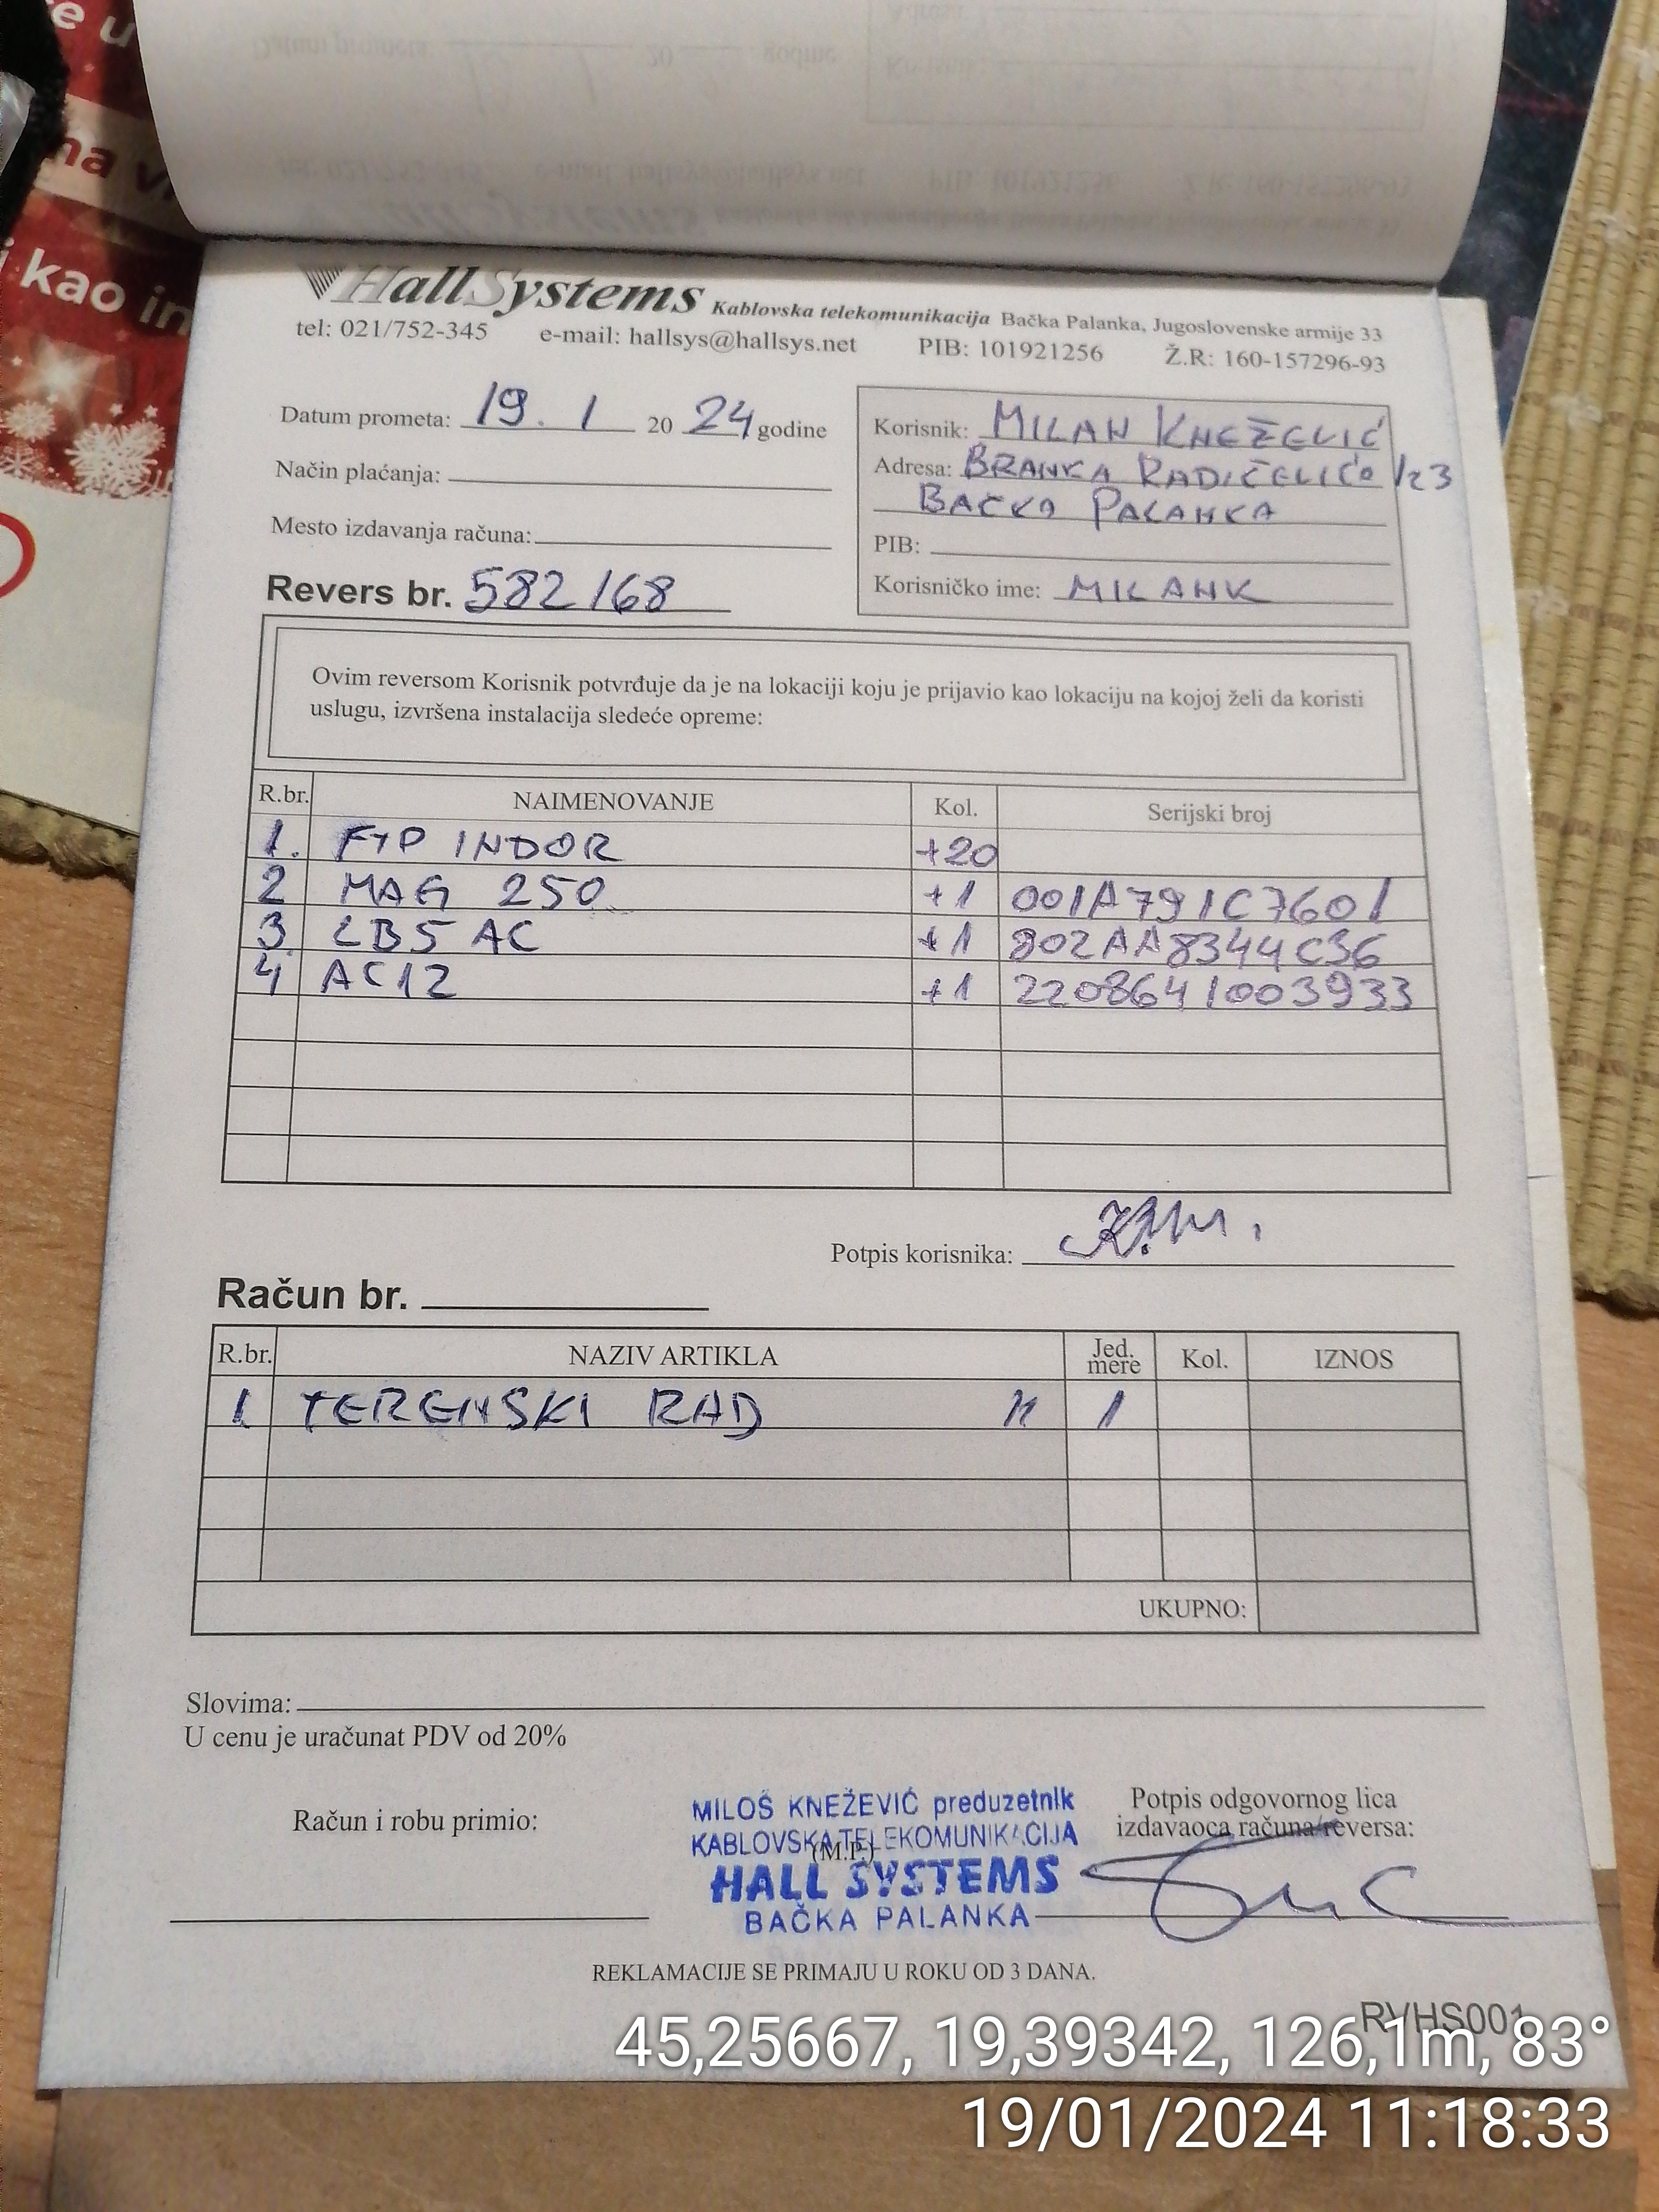 e u
na v
i kao in
HallSystems Kablovska telekomunikacija Bačka Palanka, Jugoslovenske armije 33
tel: 021/752-345 e-mail: hallsys@hallsys.net PIB: 101921256 Ž.R: 160-157296-93
Datum prometa: 19. 1 20 24 godine
Način plaćanja:
Mesto izdavanja računa:
Revers br. 582/168
Korisnik: MILAN KNEŽEVIĆ
Adresa: BRANKA RADIČEVIĆA 123
BAČKA PALANKA
PIB:
Korisničko ime: MILANK
Ovim reversom Korisnik potvrđuje da je na lokaciji koju je prijavio kao lokaciju na kojoj želi da koristi
uslugu, izvršena instalacija sledeće opreme:
R.br. NAIMENOVANJE Kol. Serijski broj
1. FTP INDOR +20
2 MAG 250 +1 001A791C7601
3 LB5 AC +1 802AA8344C36
4 AC12 +1 2208641003933
Potpis korisnika:
Račun br.
R.br. NAZIV ARTIKLA Jed. mere Kol. IZNOS
1 TERENSKI RAD H 1
UKUPNO:
Slovima:
U cenu je uračunat PDV od 20%
Račun i robu primio:
MILOŠ KNEŽEVIĆ preduzetnik
KABLOVSKA TELEKOMUNIKACIJA
(M.P.)
HALL SYSTEMS
BAČKA PALANKA
Potpis odgovornog lica
izdavaoca računa/reversa:
REKLAMACIJE SE PRIMAJU U ROKU OD 3 DANA.
RVHS001
45,25667, 19,39342, 126,1m, 83°
19/01/2024 11:18:33